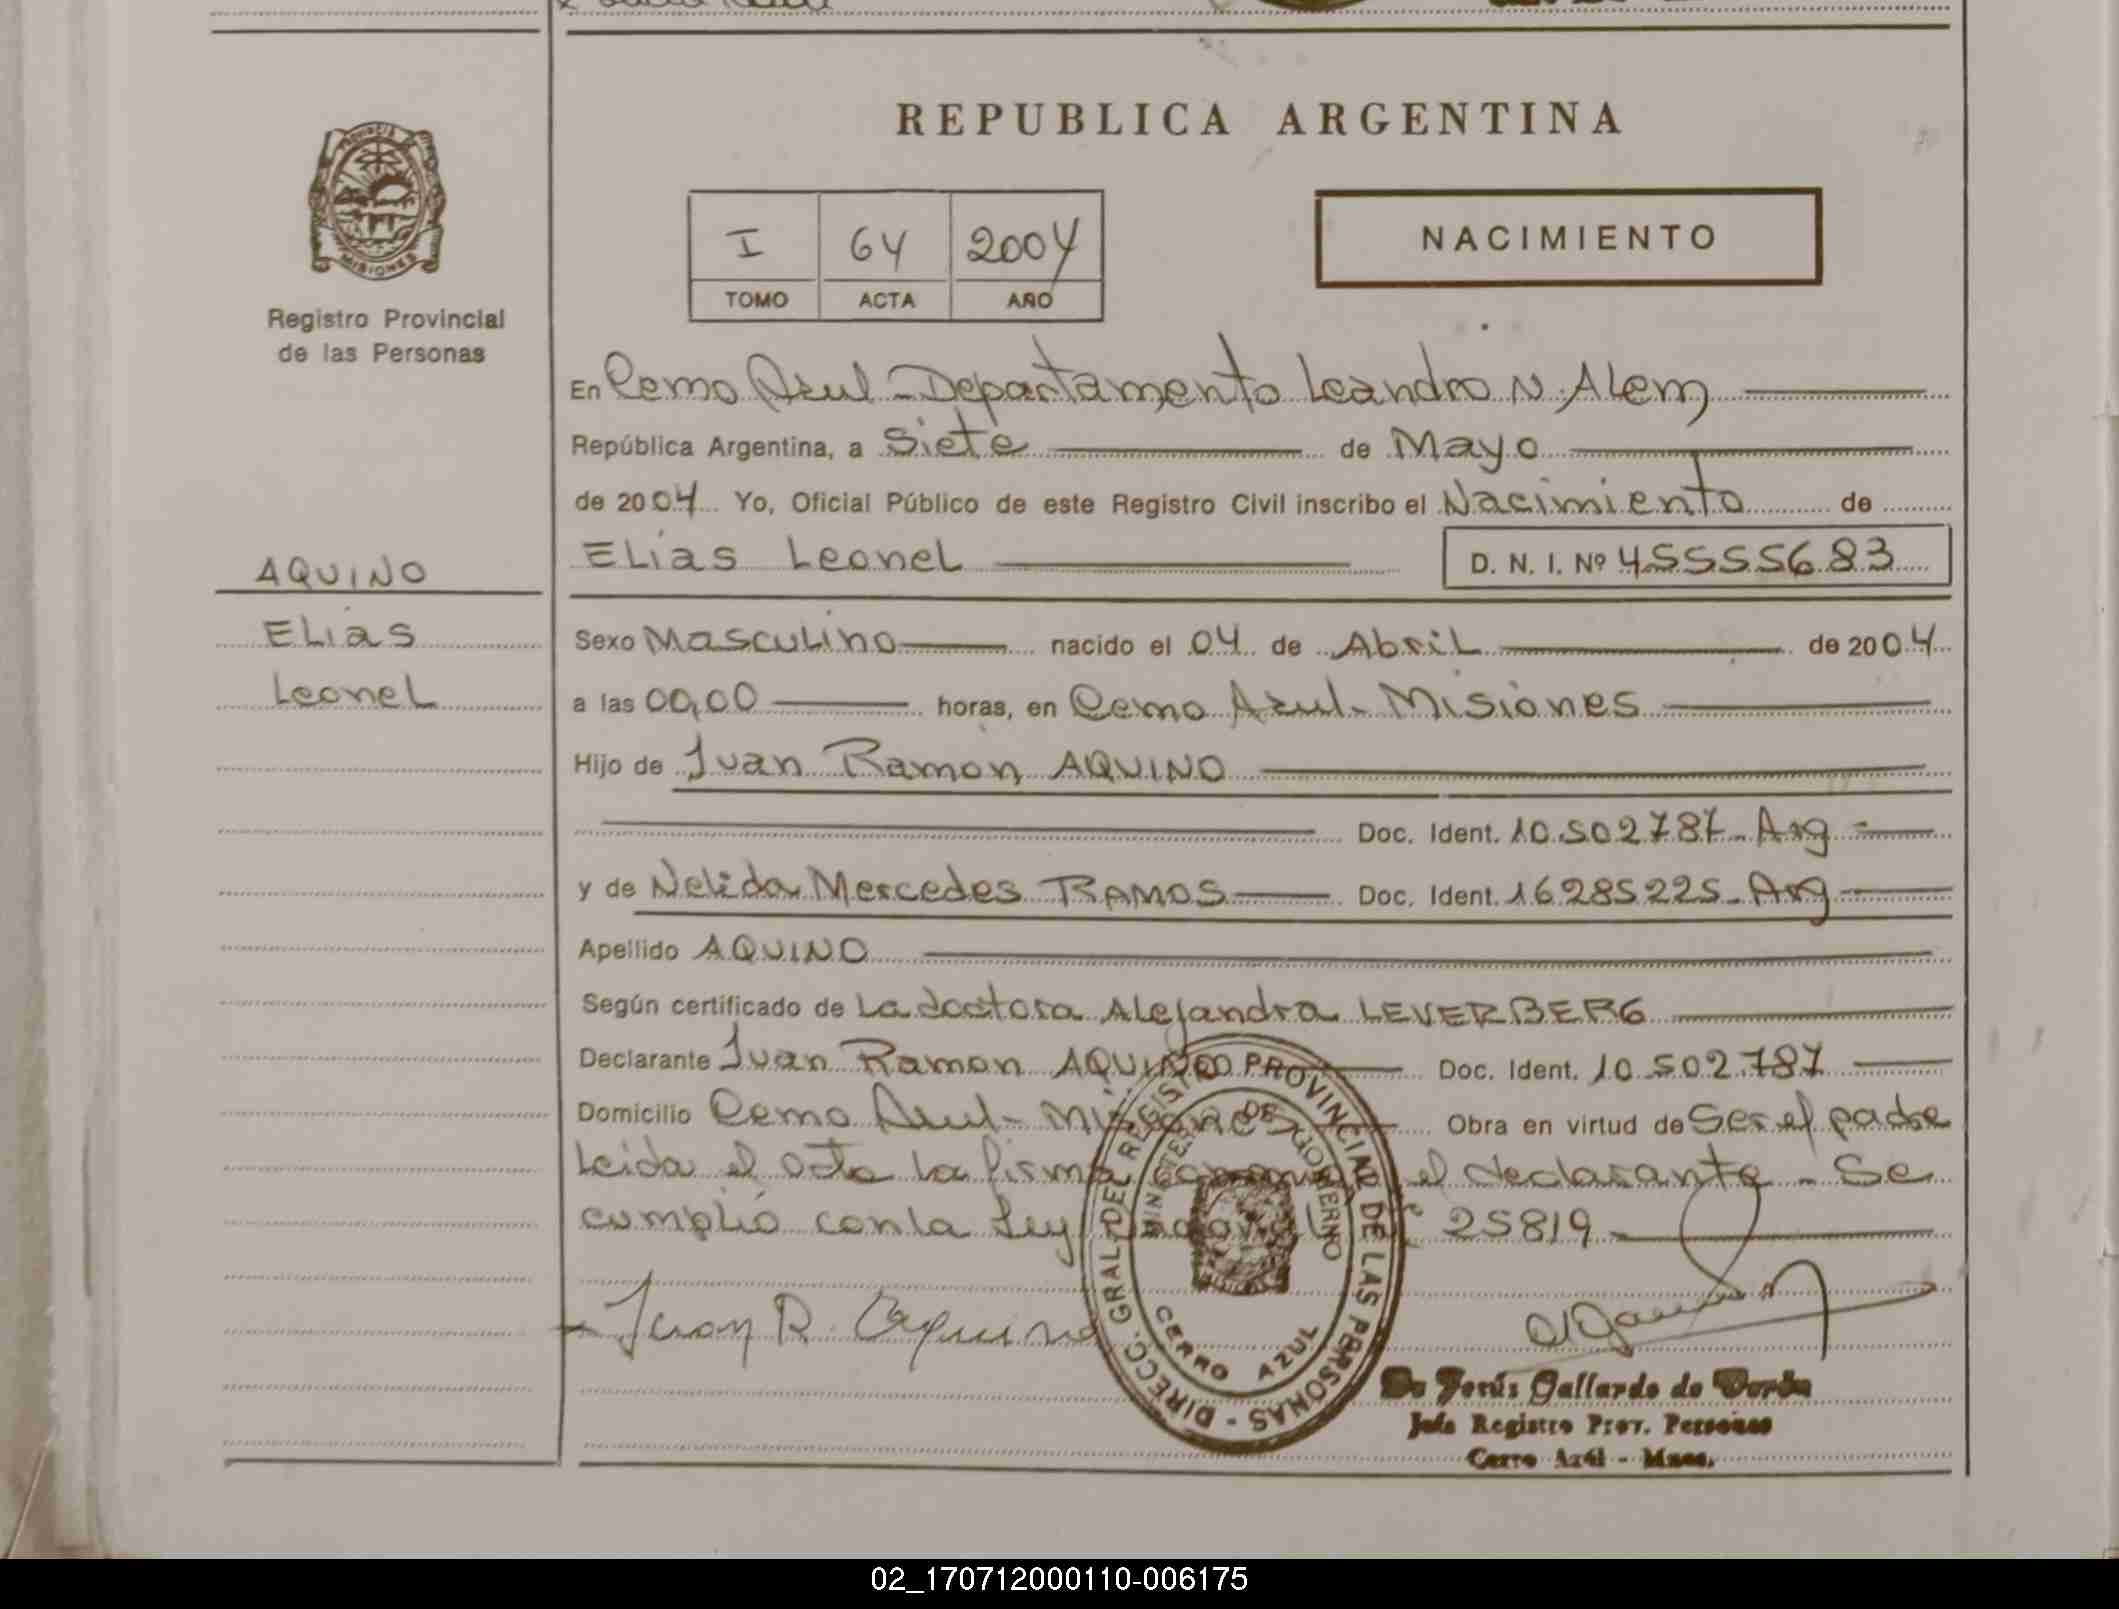 REPUBLICA ARGENTINA
PROVINCIA DE MISIONES
Registro Provincial
de las Personas
I 64 2004
TOMO ACTA AÑO
NACIMIENTO
En Cerro Azul - Departamento Leandro N. Alem
República Argentina, a Siete de Mayo
de 2004 Yo, Oficial Público de este Registro Civil inscribo el Nacimiento de
ELias LeoneL D. N. I. Nº 45555683
AQUINO
ELias
LeoneL
Sexo Masculino nacido el 04 de Abril de 2004
a las 00,00 horas, en Cerro Azul - Misiones
Hijo de Juan Ramon AQUINO
Doc. Ident. 10.502787 - Arg -
y de Nelida Mercedes RAMOS Doc. Ident. 16285225 - Arg
Apellido AQUINO
Según certificado de La doctora Alejandra LEVERBERG
Declarante Juan Ramon AQUINO Doc. Ident. 10.502.787
Domicilio Cerro Azul - Misiones Obra en virtud de Ser el padre
Leida el acta la firma conmigo el declarante - Se
cumplió con la Ley Nacional 25819
Juan R. Aquino
DIRECC. GRAL. DEL REGISTRO PROVINCIAL DE LAS PERSONAS -
MINISTERIO DE GOBIERNO
CERRO AZUL
Jesús Gallardo de
Jefa Registro Prov. Personas
Cerro Azúl - Mnes.
02_170712000110-006175